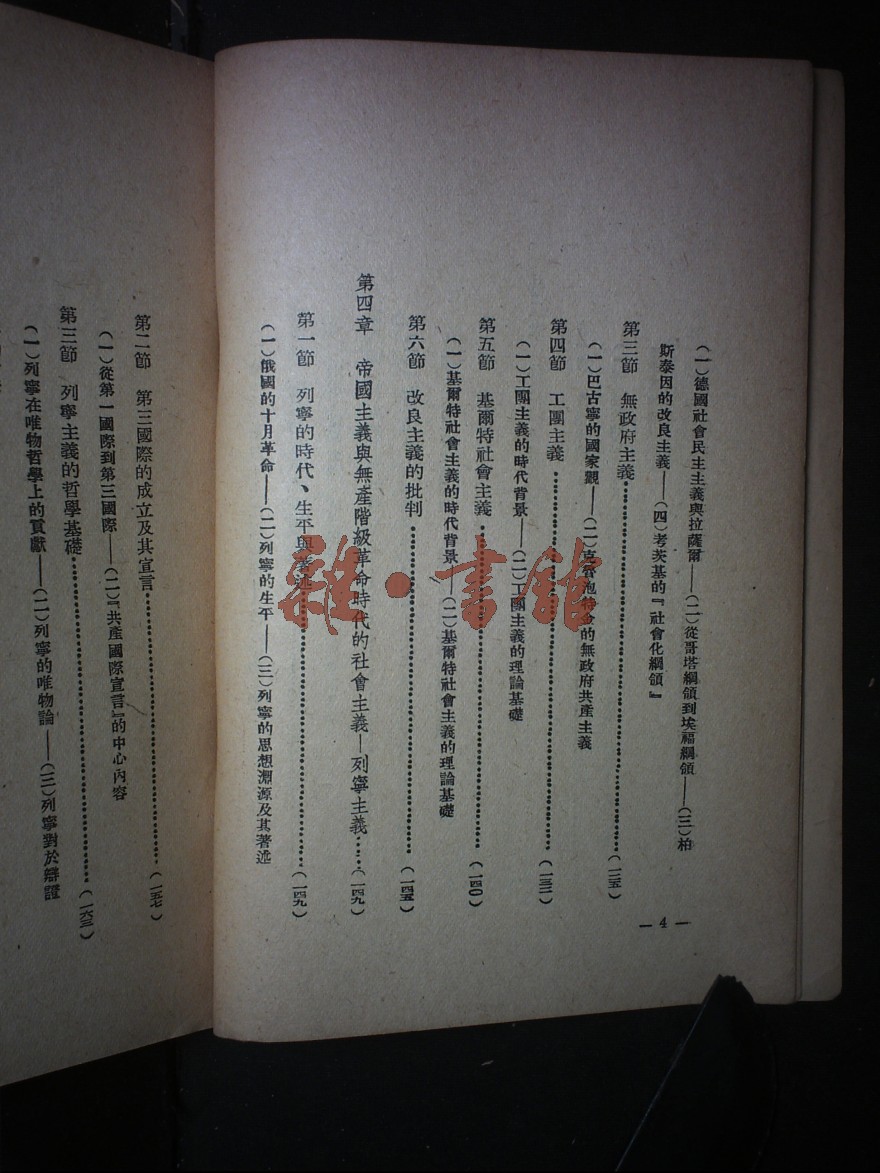 （一）德國社會民主主義與拉薩爾——（二）從哥塔綱領到埃福綱領——（三）柏
斯泰因的改良主義——（四）考茨基的『社會化綱領』
第三節　無政府主義……（一二五）
（一）巴古寧的國家觀——（二）克魯泡特金的無政府共產主義
第四節　工團主義……（一三二）
（一）工團主義的時代背景——（二）工團主義的理論基礎
第五節　基爾特社會主義……（一四〇）
（一）基爾特社會主義的時代背景——（二）基爾特社會主義的理論基礎
第六節　改良主義的批判……（一四五）
第四章　帝國主義與無產階級革命時代的社會主義—列寧主義……（一四九）
第一節　列寧的時代、生平與著述……（一四九）
（一）俄國的十月革命——（二）列寧的生平——（三）列寧的思想淵源及其著述
— 4 —
第二節　第三國際的成立及其宣言……（一五七）
（一）從第一國際到第三國際——（二）『共產國際宣言』的中心內容
第三節　列寧主義的哲學基礎……（一六三）
（一）列寧在唯物哲學上的貢獻——（二）列寧的唯物論——（三）列寧對於辯證
雜·書館